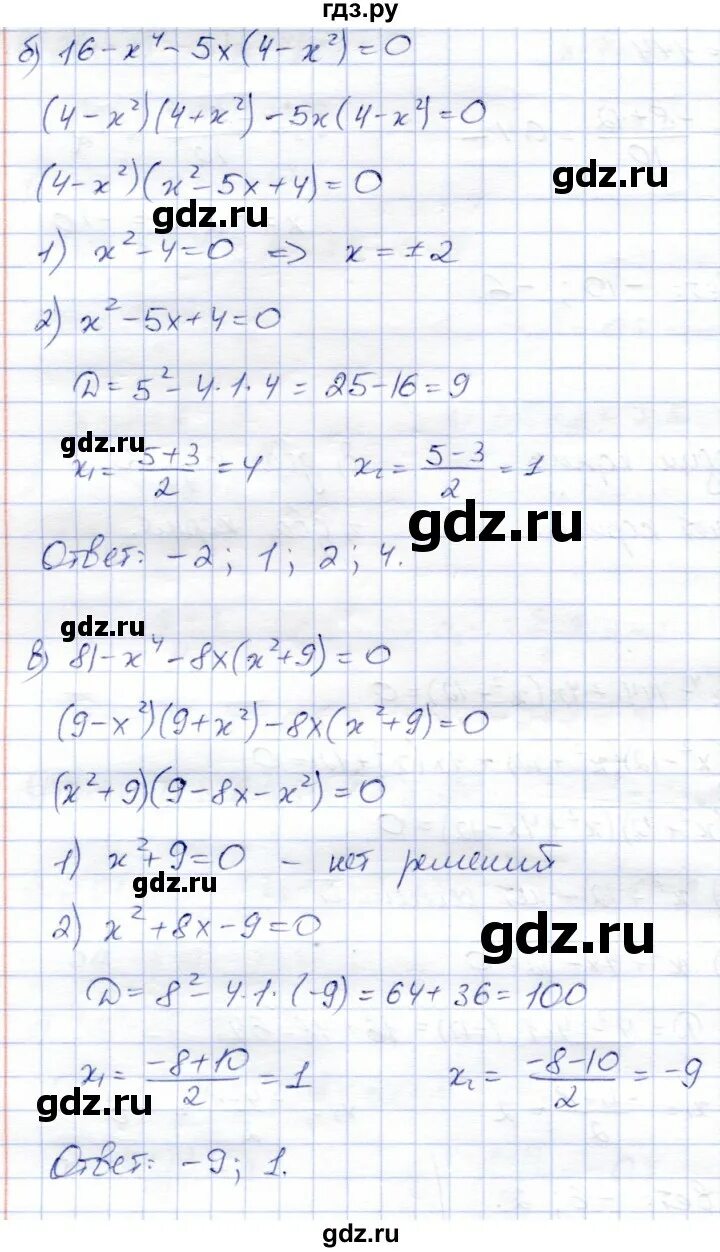 гдз.ру
б) 16 - x⁴ - 5x(4 - x²) = 0
(4 - x²)(4 + x²) - 5x(4 - x²) = 0
(4 - x²)(x² - 5x + 4) = 0
gdz.ru
gdz.ru
1) x² - 4 = 0 => x = ±2
2) x² - 5x + 4 = 0
D = 5² - 4·1·4 = 25 - 16 = 9
gdz.ru
x₁ = (5+3)/2 = 4 x₂ = (5-3)/2 = 1
gdz.ru
Ответ: -2; 1; 2; 4.
gdz.ru
в) 81 - x⁴ - 8x(x² + 9) = 0
(9 - x²)(9 + x²) - 8x(x² + 9) = 0
(x² + 9)(9 - 8x - x²) = 0
1) x² + 9 = 0 - нет решений
gdz.ru
2) x² + 8x - 9 = 0
gdz.ru
D = 8² - 4·1·(-9) = 64 + 36 = 100
x₁ = (-8+10)/2 = 1 x₂ = (-8-10)/2 = -9
gdz.ru
Ответ: -9; 1.
gdz.ru